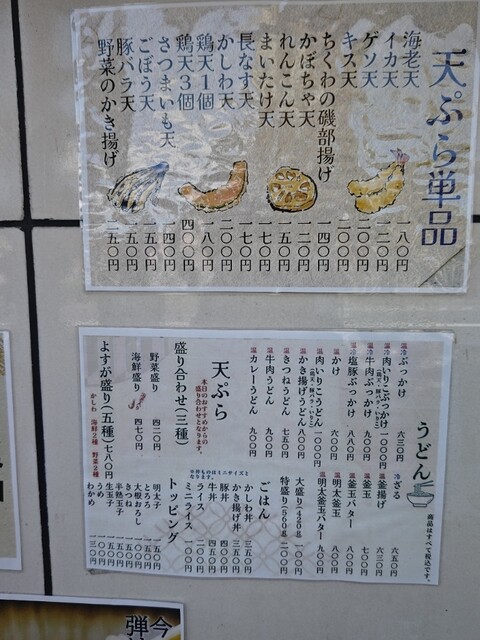 天ぷら単品
海老天 一八〇円
イカ天 一二〇円
ゲソ天 二〇〇円
キス天 二〇〇円
ちくわの磯部揚げ 一四〇円
かぼちゃ天 一二〇円
れんこん天 一五〇円
まいたけ天 一七〇円
長なす天 一七〇円
かしわ天 二〇〇円
鶏天1個 一八〇円
鶏天3個 四〇〇円
さつまいも天 一四〇円
ごぼう天 一五〇円
豚バラ天 一五〇円
野菜のかき揚げ 一五〇円
うどん
商品はすべて税込です。
温冷 ぶっかけ 六三〇円
温冷 肉いりこぶっかけ 一〇〇〇円
温冷 牛肉ぶっかけ 九〇〇円
温冷 塩豚ぶっかけ 八八〇円
温 かけ
温 肉いりこうどん 一〇〇〇円
温 かき揚げうどん 八〇〇円
温 きつねうどん 七五〇円
温 牛肉うどん 九〇〇円
温 カレーうどん 九〇〇円
冷 ざる 六五〇円
温 釜揚げ 六三〇円
温 釜玉 七〇〇円
温 釜玉バター 八〇〇円
温 明太釜玉 八〇〇円
温 明太釜玉バター 九〇〇円
大盛り(420g) 一〇〇円
特盛り(560g) 二〇〇円
天ぷら
本日のおすすめからの
盛り合わせとなります。
盛り合わせ(三種)
野菜盛り 四二〇円
海鮮盛り 五四〇円
よすが盛り(五種) 七八〇円
かしわ 海鮮2種 野菜2種
ごはん
※丼ものはミニサイズと
なります。
かしわ丼 三五〇円
かき揚げ丼 三五〇円
豚丼 四五〇円
牛丼 五〇〇円
ライス 二〇〇円
ミニライス 一〇〇円
トッピング
明太子 一五〇円
とろろ
大根おろし 一〇〇円
きつね
半熟玉子
生玉子
うめ
わかめ
今
弾